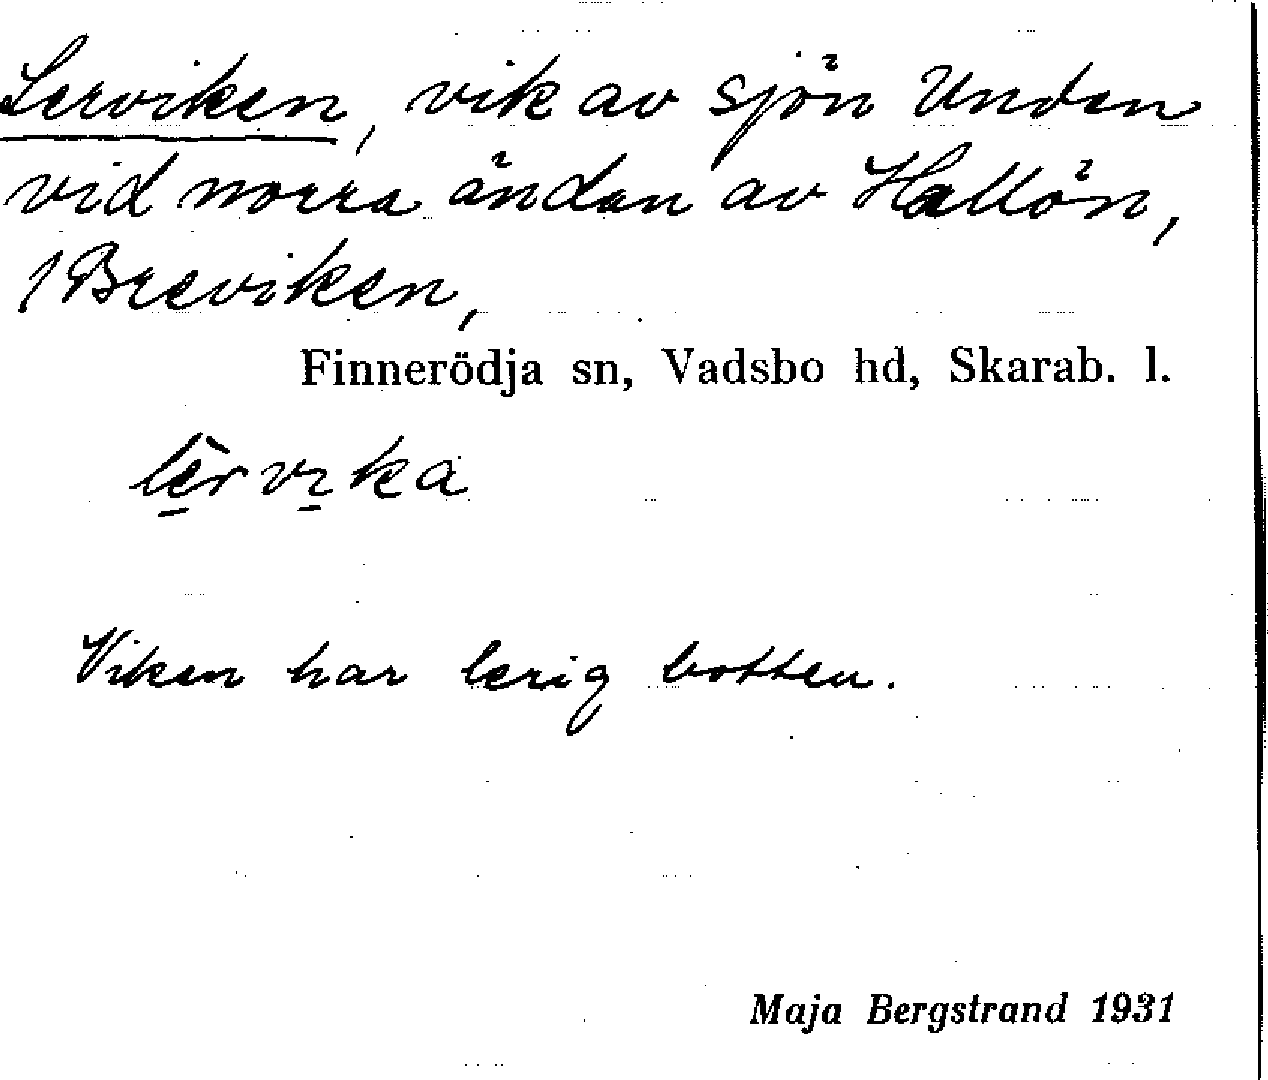 Lerviken, vik av sjön Unden
vid norra ändan av Hallön,
/Breviken,
Finnerödja sn, Vadsbo hd, Skarab. l.
lèrvıka
Viken har lerig botten.
Maja Bergstrand 1931